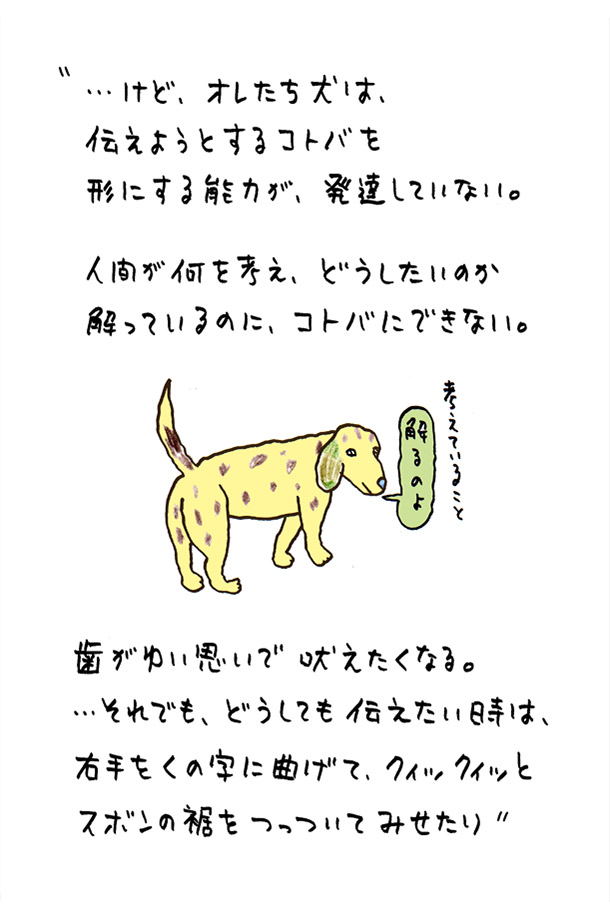 〝…けど、オレたち犬は、
伝えようとするコトバを
形にする能力が、発達していない。
人間が何を考え、どうしたいのか
解っているのに、コトバにできない。
考えていること
解るのよ
歯がゆい思いで吠えたくなる。
…それでも、どうしても伝えたい時は、
右手をくの字に曲げて、クィックィッと
スボンの裾をつっついてみせたり〃